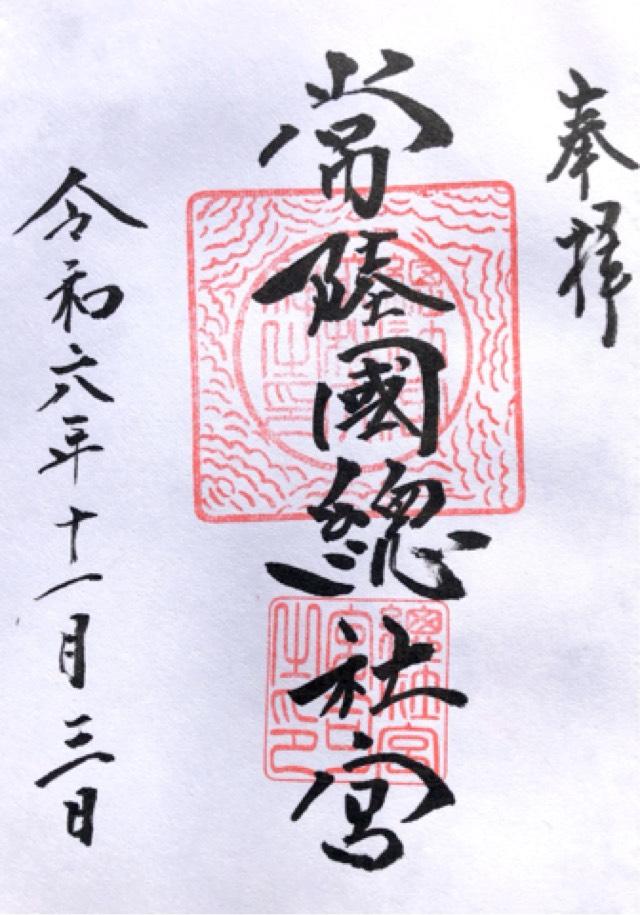 奉拝
常陸國總社宮
令和六年十一月三日